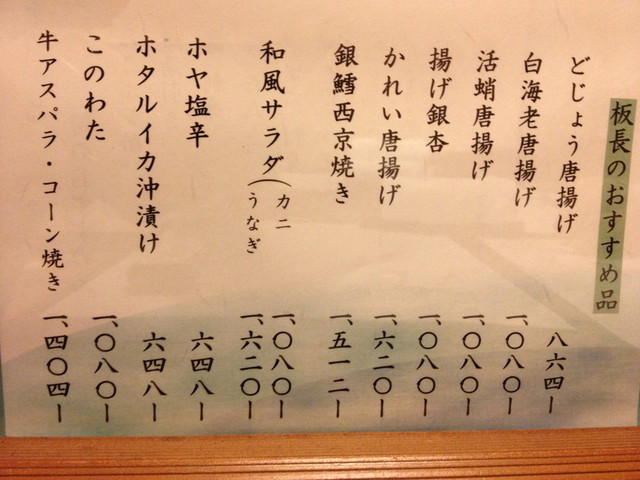 板長のおすすめ品
どじょう唐揚げ 八六四ー
白海老唐揚げ 一、〇八〇ー
活蛸唐揚げ 一、〇八〇ー
揚げ銀杏 一、〇八〇ー
かれい唐揚げ 一、六二〇ー
銀鱈西京焼き 一、五一二ー
和風サラダ(カニ 一、〇八〇ー
うなぎ 一、六二〇ー
ホヤ塩辛 六四八ー
ホタルイカ沖漬け 六四八ー
このわた 一、〇八〇ー
牛アスパラ・コーン焼き 一、四〇四ー